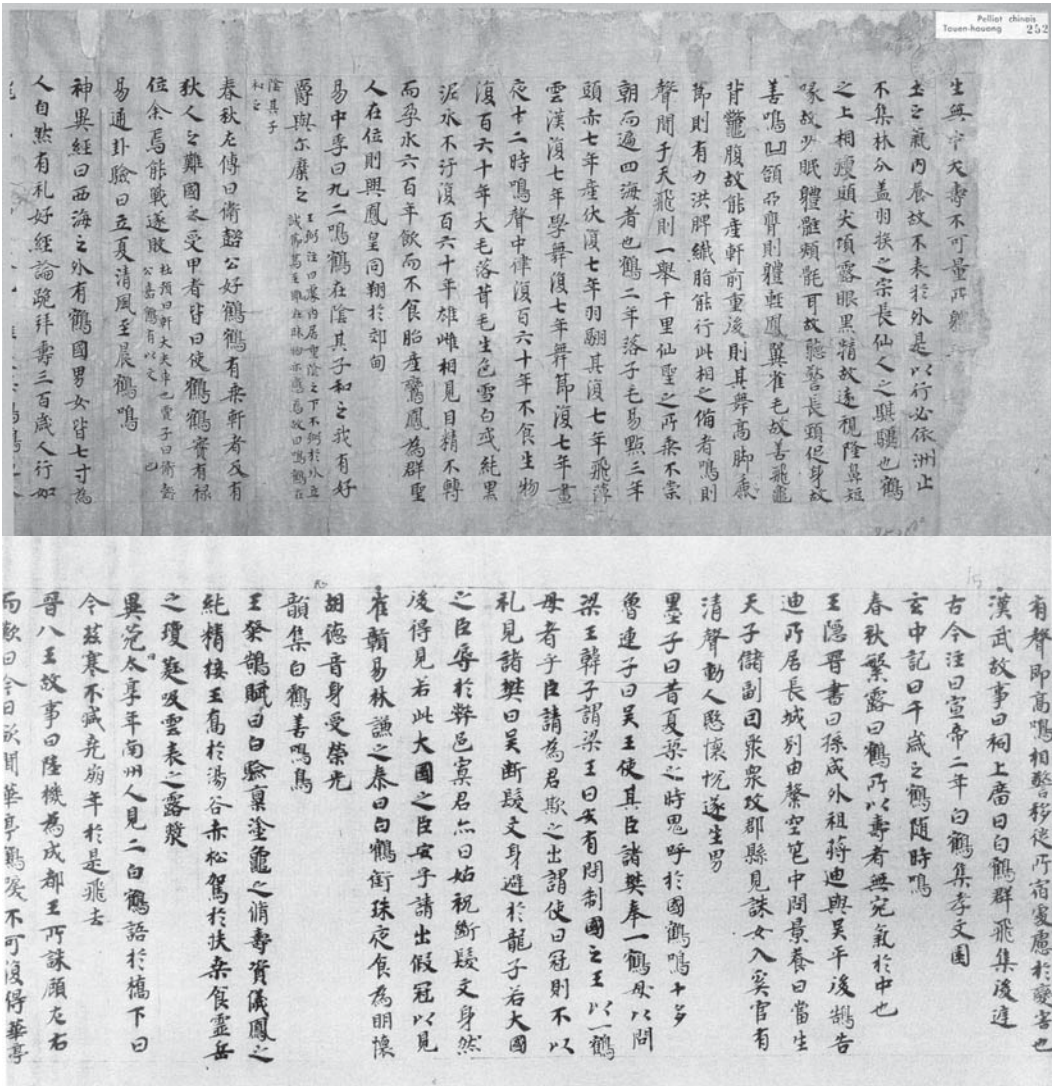 Pelliot chinois
Touen-houang 252
生無中夭壽不可量所軆
土之氣內養故不表於外是以行必依洲止
不集林盖羽族之宗長仙人之騏驥也鶴
之上相瘦頭朱項露眼黑精故遠視隆鼻短
喙故少眠軆骽頰骴耳故聽警長頸促身故
善鳴凹頷亞膺則軆輕鳳翼雀毛故善飛龜
背鼈腹故能產軒前重後則其舞高脚麁
節則有力洪脾纎脂能行此相之備者鳴則
聲聞于天飛則一舉千里仙聖之所乗不崇
朝而遍四海者也鶴二年落子毛易點三年
頭赤七年產伏復七年羽翮其復七年飛薄
雲漢復七年學舞復七年舞節復七年晝
夜十二時鳴聲中律復百六十年不食生物
復百六十年大毛落茸毛生色雪白或純黑
泥水不汙復百六十年雄雌相見目精不轉
而孕水六百年飲而不食胎產鸞鳳為群聖
人在位則與鳳皇同翔於郊甸
易中孚曰九二鳴鶴在陰其子和之我有好
爵與尒靡之 王弼注曰處內居重陰之下不徇於外立
誠篤至雖在昧物亦應焉故曰鳴鶴在
陰其子
和之
春秋左傳曰衛懿公好鶴鶴有乗軒者及有
狄人之難國之受甲者皆曰使鶴鶴實有禄
位余焉能戰遂敗 杜預曰軒大夫車也賈子曰衛懿
公喜鶴有以文 也
易通卦驗曰立夏清風至晨鶴鳴
神異經曰西海之外有鶴國男女皆七寸為
人自然有礼好經論跪拜壽三百歲人行如
有聲即高鳴相警移徙所宿處慮於變害也
漢武故事曰祠上廣曰白鶴群飛集後達
古今注曰宣帝二年白鶴集孝文園
玄中記曰千歲之鶴随時鳴
春秋繁露曰鶴所以壽者無宛氣於中也
王隱晉書曰孫咸外祖蔣迪與吴平後鵠告
迪所居長城別由整空笆中問景養曰當生
天子儲副因聚衆攻郡縣見誅女入奚官有
清聲動人愍懷悅遂生男
墨子曰昔夏桀之時鬼呼於國鶴鳴十夕
魯連子曰吴王使其臣諸樊奉一鶴毋以問
梁王韓子謂梁王曰安有問制國之王以一鶴
毋者乎臣請為君欺之出謂使曰冠則不以
礼見諸樊曰吴断髮文身避於龍子若大國
之臣辱於弊邑寡君亦曰始祝斷髮文身然
後得見若此大國之臣安乎請出假冠以見
崔駰易林謙之泰曰白鶴銜珠夜食為明懷
胡德音身受榮光
韻集白鶴善鳴鳥
王粲鶴賦曰白翎稟塗龜之脩壽資儀鳳之
純精接王喬於湯谷赤松駕於扶桒食靈岳
之瓊蘂吸雲表之露漿
異苑太康年南州人見二白鶴語於橋下曰
今兹寒不減堯崩年於是飛去
晉八王故事曰陸機為成都王所誅顧左右
而歎曰今日欲聞華亭鶴唳不可復得華亭